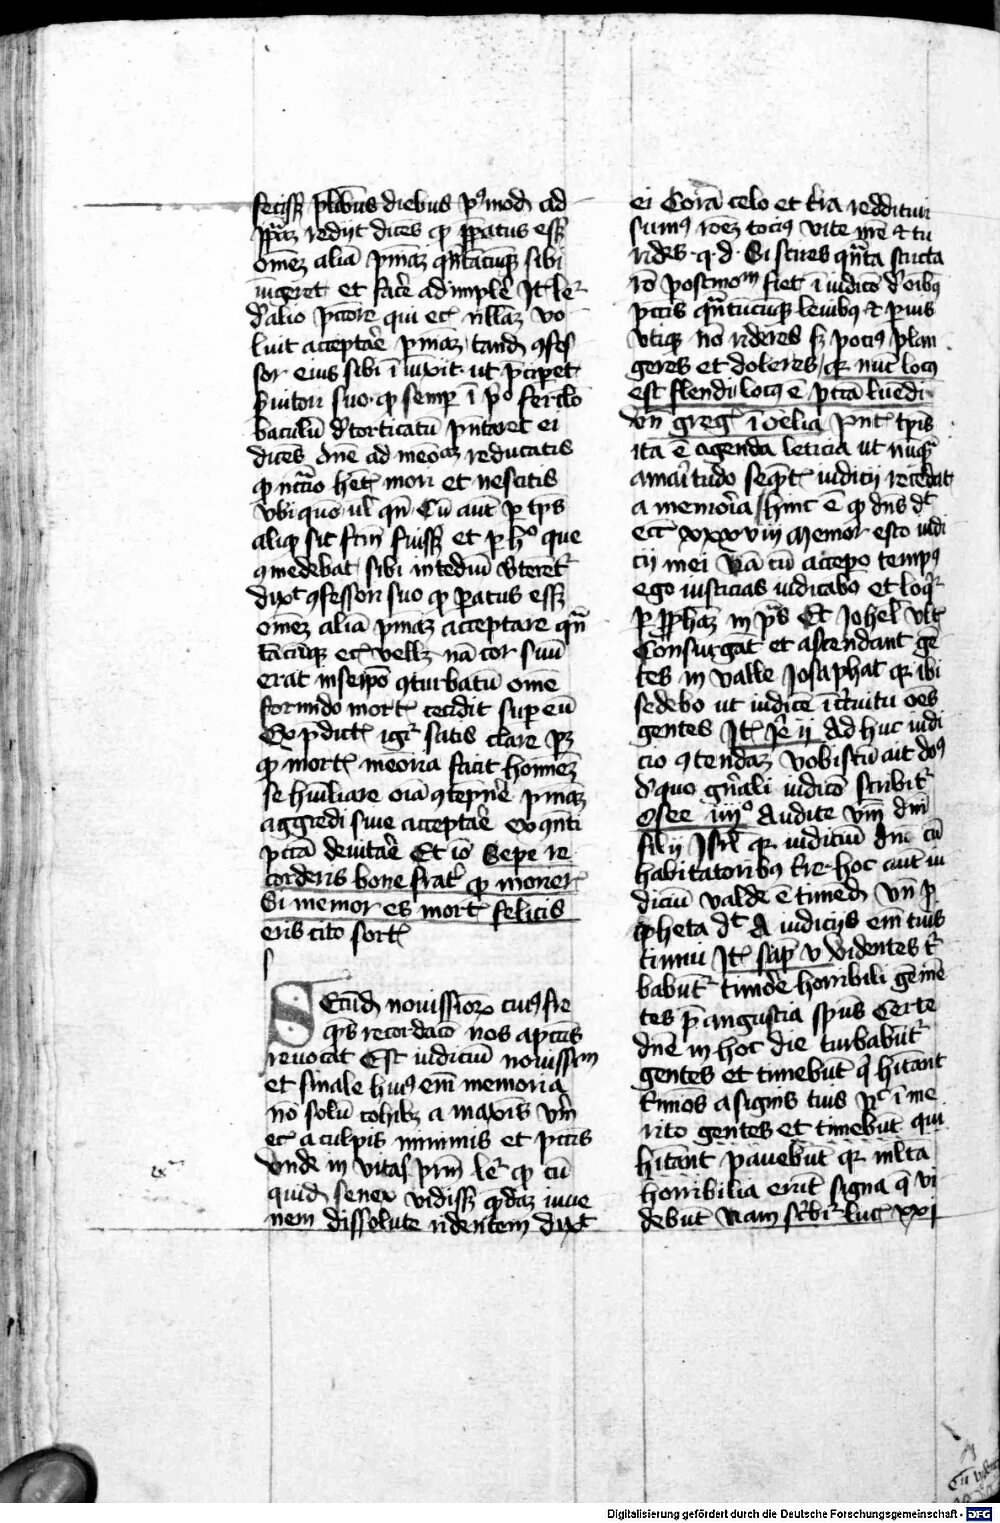 fecisset pluribus diebus postmodum ad
papam redijt dicens quod paratus esset
omnem aliam penitentiam quantamcumque sibi
iungeret et facere adimplere Item legitur
de alio peccatore qui eciam nullam vo
luit acceptare penitentiam tandem confes
sor eius sibi iniunxit ut preciperet
seruitori suo quod semper in ferculo
baculum detorticatum presentaret ei
dicens domine ad memoriam reducatis
quod necessario habetis mori et nescitis
vbi quomodo uel quando Cum autem per tempus
aliquod sic factum fuisset et per hoc que
comedebat sibi in tedium verteretur
dixit confessori suo quod paratus esset
omnem aliam penitentiam acceptare quan
tamcumque eciam vellet nam cor suum
erat in seipso conturbatum omnis
formido mortis cecidit super eum
Ex predictis igitur satis clare patet
quod mortis memoria facit hominem
se humiliare omnia contempnere penitentiam
aggredi siue acceptare et quanti
peccata deuitare Et ideo Sepe re
corderis bone frater quod morieris
Si memor es mortis felicis
eris cito fortis
Secundum nouissimorum cuius fre
quens recordacio nos a peccatis
reuocat Est iudicium nouissimum
et finale huius enim memoria
non solum cohibet a maximis verum
eciam a culpis minimis et peccatis
vnde in vitas patrum legitur quod cum
quidam senex vidisset quendam iuue
nem dissolute ridentem dixit
ei Coram celo et terra reddituri
sumus racionem tocius vite nostre et tu
rides q.d. Si scires quanta stricta
racio postmodum fiet in iudicio de omnibus
peccatis quantumcumque leuibus et paruis
vtique non rideres sed pocius plan
geres et doleres quia nunc locus
est flendi locus est peccata luendi
vnde gregorius in omelia presentis temporis
ita est agenda leticia ut nunquam
amaritudo sequentis iudicij recedat
a memoria hinc est quod dominus dicit
ecci xxxviii Memor esto iudi
cij mei Nam cum accepero tempus
ego iusticias iudicabo et loquitur
per prophetam in psalmis Et Johel vlt
Consurgant et ascendant gen
tes in valle Josaphat quia ibi
sedebo ut iudicem in circuitu omnes
gentes Item Jere ii Ad huc iudi
cio contendam vobiscum ait dominus
de quo generali iudicio scribitur
Osee iiiio Audite verbum domini
filij Israel quia iudicium domino cum
habitatoribus terre hoc autem iu
dicium valde est timendum vnde pro
pheta dicit A iudicijs enim tuis
timui Item sap v Videntes tur
babuntur timore horribili gemen
tes pre angustia spiritus Certe
domine in hoc die turbabuntur
gentes et timebunt qui habitant
terminos a signis tuis ... in me
rito gentes et timebunt qui
habitant pauebunt quia multa
horribilia erunt signa que vi
debunt Nam scribitur luce xxi
Digitalisierung gefördert durch die Deutsche Forschungsgemeinschaft - DFG